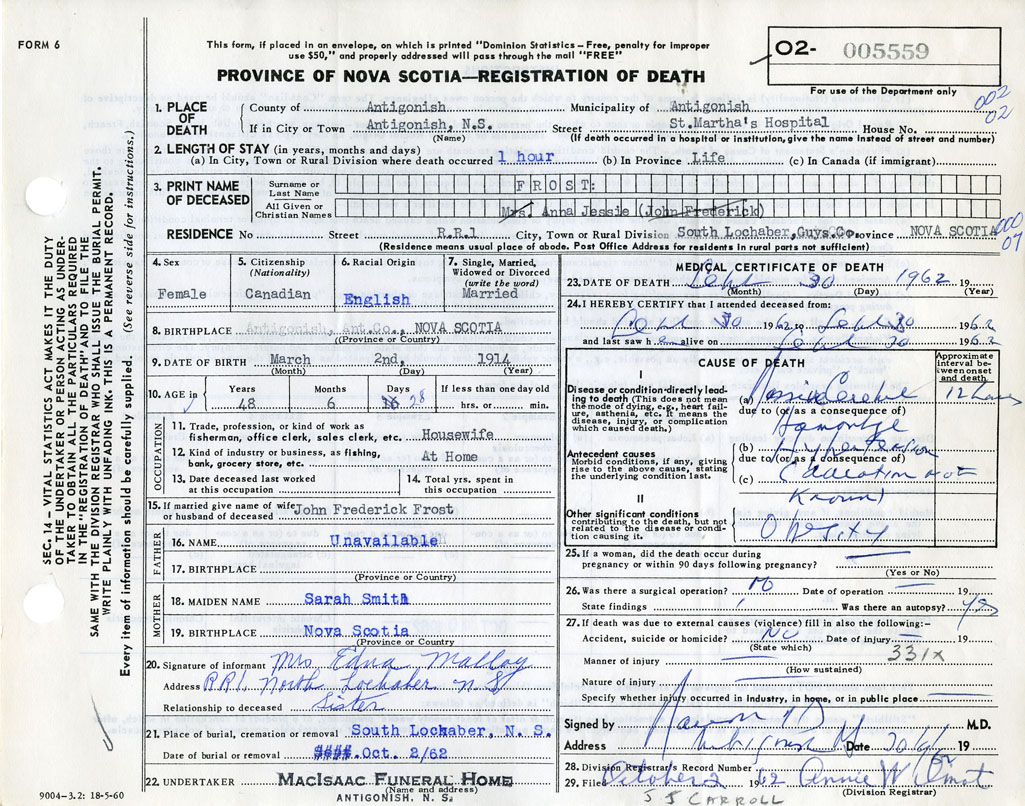 FORM 6
This form, if placed in an envelope, on which is printed "Dominion Statistics – Free, penalty for improper
use $50," and properly addressed will pass through the mail "FREE"
PROVINCE OF NOVA SCOTIA—REGISTRATION OF DEATH
02- 005559
For use of the Department only
002
02
SEC. 14 – VITAL STATISTICS ACT MAKES IT THE DUTY
OF THE UNDERTAKER OR PERSON ACTING AS UNDER-
TAKER TO OBTAIN ALL THE PARTICULARS REQUIRED
IN THE "REGISTRATION OF DEATH" AND TO FILE THE
SAME WITH THE DIVISION REGISTRAR WHO SHALL ISSUE THE BURIAL PERMIT.
WRITE PLAINLY WITH UNFADING INK. THIS IS A PERMANENT RECORD.
Every item of information should be carefully supplied. (See reverse side for instructions.)
1. PLACE OF DEATH
County of Antigonish Municipality of Antigonish
If in City or Town Antigonish, N.S. Street St.Martha's Hospital House No.
(Name) (If death occurred in a hospital or institution, give the name instead of street and number)
2. LENGTH OF STAY (in years, months and days)
(a) In City, Town or Rural Division where death occurred 1 hour (b) In Province Life (c) In Canada (if immigrant)
3. PRINT NAME OF DECEASED
Surname or Last Name FROST:
All Given or Christian Names Mrs. Anna Jessie (John Frederick)
RESIDENCE No Street R.R.1 City, Town or Rural Division South Lochaber,Guys.Co Province NOVA SCOTIA
000
07
(Residence means usual place of abode. Post Office Address for residents in rural parts not sufficient)
4. Sex Female
5. Citizenship (Nationality) Canadian
6. Racial Origin English
7. Single, Married, Widowed or Divorced (write the word) Married
8. BIRTHPLACE Antigonish, ant.Co., NOVA SCOTIA
(Province or Country)
9. DATE OF BIRTH March 2nd, 1914
(Month) (Day) (Year)
10. AGE in Years Months Days If less than one day old
48 6 28 hrs. or min.
OCCUPATION
11. Trade, profession, or kind of work as
fisherman, office clerk, sales clerk, etc. Housewife
12. Kind of industry or business, as fishing,
bank, grocery store, etc. At Home
13. Date deceased last worked
at this occupation
14. Total yrs. spent in
this occupation
15. If married give name of wife
or husband of deceased John Frederick Frost
FATHER
16. NAME Unavailable
17. BIRTHPLACE
(Province or Country)
MOTHER
18. MAIDEN NAME Sarah Smith
19. BIRTHPLACE Nova Scotia
(Province or Country)
20. Signature of informant Mrs Edna Malloy
Address RR1, North Lochaber N S
Relationship to deceased Sister
21. Place of burial, cremation or removal South Lochaber, N. S.
Date of burial or removal Oct. 2/62
22. UNDERTAKER MACISAAC FUNERAL HOME
(Name and address)
ANTIGONISH, N. S.
9004–3.2: 18-5-60
MEDICAL CERTIFICATE OF DEATH
23. DATE OF DEATH Sept 30 1962 19
(Month) (Day) (Year)
24. I HEREBY CERTIFY that I attended deceased from:
Sept 30 1962 to Sept 30 1962
and last saw h er alive on Sept 30 1962
CAUSE OF DEATH
Approximate interval between onset and death
I
Disease or condition directly lead-
ing to death (This does not mean
the mode of dying, e.g., heart fail-
ure, asthenia, etc. It means the
disease, injury, or complication
which caused death.)
(a) Massive Cerebral 12 hours
due to (or as a consequence of)
Hemorrhge
Antecedent causes
Morbid conditions, if any, giving
rise to the above cause, stating
the underlying condition last.
(b) Hypertension
due to (or as a consequence of)
(c) not
Known)
II
Other significant conditions
contributing to the death, but not
related to the disease or condi-
tion causing it.
Obesity
25. If a woman, did the death occur during
pregnancy or within 90 days following pregnancy?
(Yes or No)
26. Was there a surgical operation? No Date of operation
State findings Was there an autopsy? yes
27. If death was due to external causes (violence) fill in also the following:–
Accident, suicide or homicide? No Date of injury 19
(State which) 331x
Manner of injury
(How sustained)
Nature of injury
Specify whether injury occurred in Industry, in home, or in public place
Signed by M.D.
Address Antigonish Date 19
28. Division Registrar's Record Number
29. Filed October 2 62 Annie W
(Division Registrar)
J J CARROLL